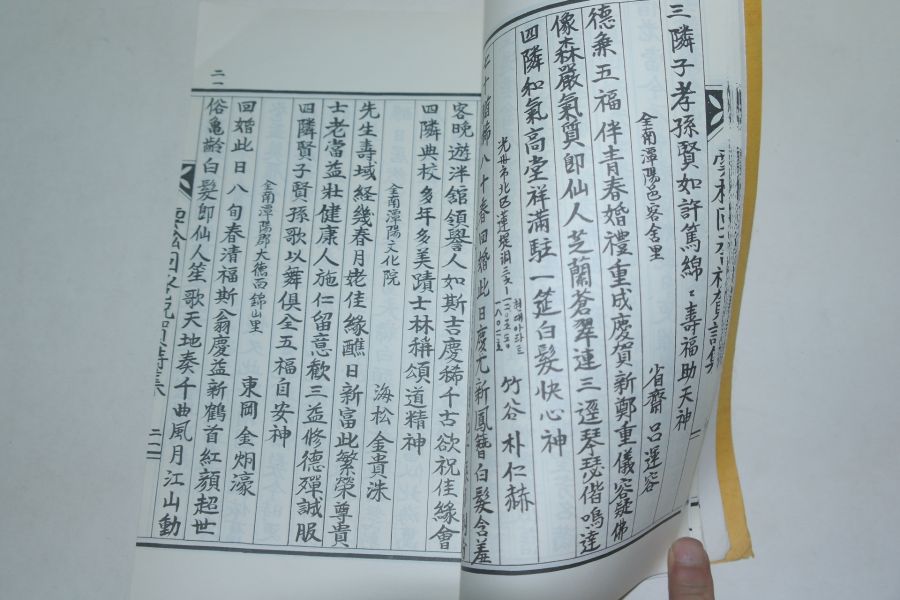 三隣子孝孫賢如許篤綿〻壽福助天神
全南潭陽邑客舍里 省齋 呂運容
德兼五福伴青春婚禮重成慶賀新鄭重儀容疑佛
像森嚴氣質即仙人芝蘭蒼翠連三逕琴瑟偕鳴達
四隣和氣高堂祥滿駐一筵白髮快心神
光州市北區蓮堤洞 竹谷 朴仁赫
八十春回婚此日慶尤新鳳 白髮含羞
客晚遊泮館領譽人如斯吉慶稀千古欲祝佳緣會
四隣典校多年多美蹟士林稱頌道精神
全南潭陽文化院 海松 金貴洙
先生壽域経幾春月姥佳緣醮日新富此繁榮尊貴
士老當益壯健康人施仁留意歡三益修德殫誠服
四隣賢子賢孫歌以舞俱全五福自安神
全南潭陽郡大德面錦山里 東岡 金炯濠
回婚此日八旬春清福斯翁慶益新鶴首紅顔超世
俗龜齡白髮即仙人笙歌天地奏千曲風月江山動
二一